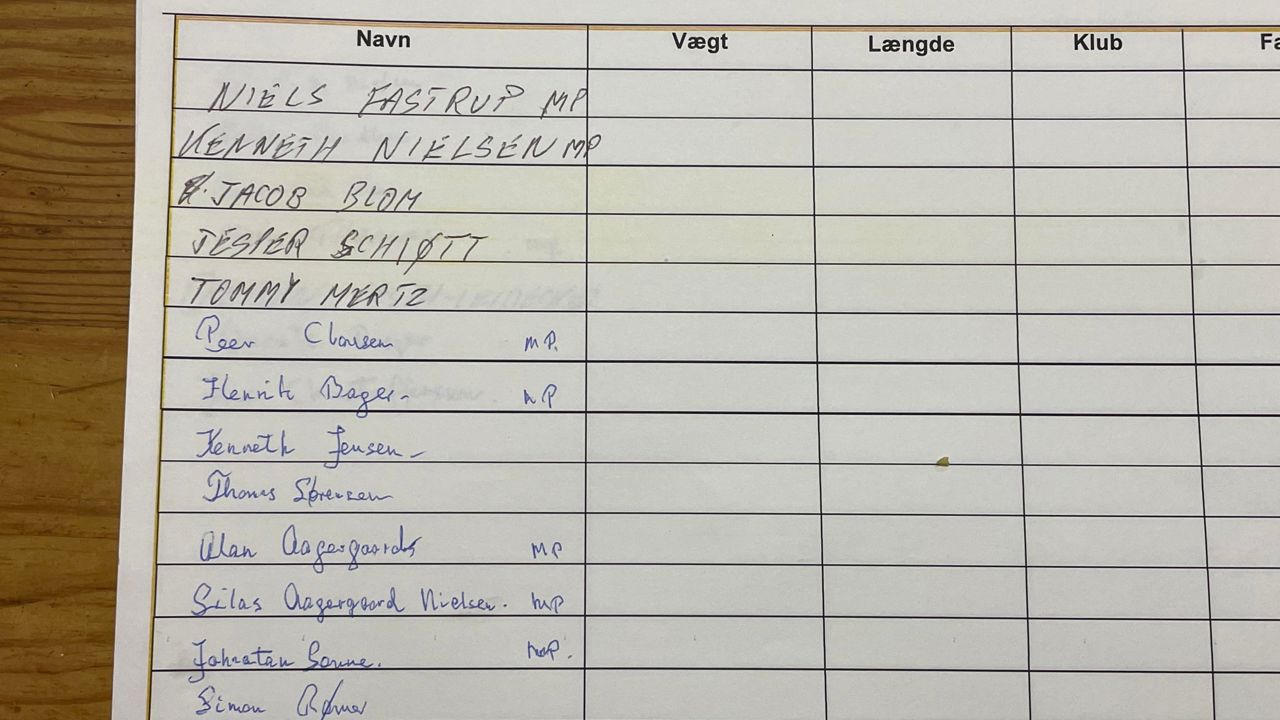 Navn Vægt Længde Klub Fa
NIELS FASTRUP MP
KENNETH NIELSEN MP
JACOB BLOM
JESPER SCHIØTT
TOMMY MERTZ
Peer Clausen MP.
Henrik Bager- MP
Kenneth Jensen-
Thomas Sørensen
Alan Aagergaard MP
Silas Aagergaard Nielsen. MP
Johnatan Sonne. MP.
Simon Rømer